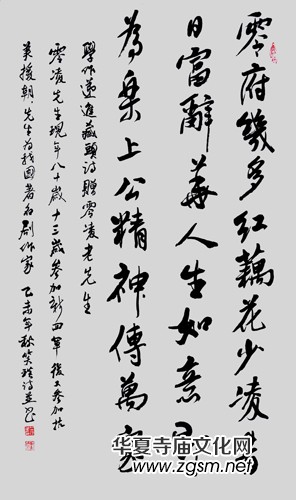 零府幾多紅藕花少凌
日富辭華人生如意
為樂上公精神傳萬家
學作遞進藏頭詩贈零凌老先生
零凌先生現年八十歲十三歲參加新四軍後又參加抗
美援朝先生為我國著名劇作家 乙未年秋笑詩並書
华夏寺庙文化网
www.zgsm.net